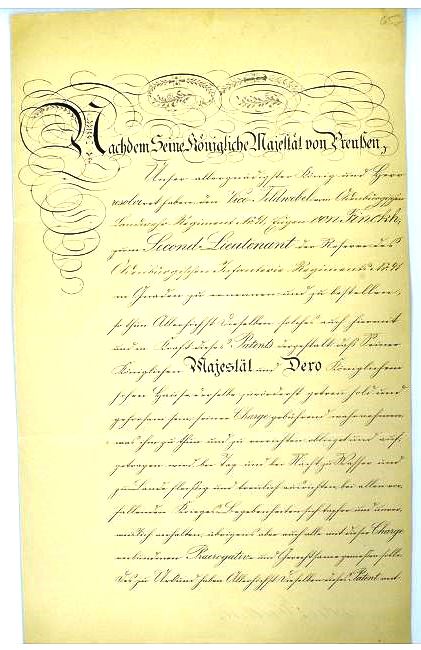 65.
Nachdem Seine Königliche Majestät von Preußen,
Unser allergnädigster König und Herr
resolvirt haben, den Vice-Feldwebel vom Oldenburgischen
Landwehr Regiment No. 91, Eugen von Finckh,
zum Second-Lieutenant der Reserve des
Oldenburgischen Infanterie Regiments No. 91
in Gnaden zu ernennen und zu bestellen,
so thun Allerhöchst Dieselben solches auch hiermit
und in Kraft dieses Patents dergestalt daß Seiner
Königlichen Majestät und Dero Königlichem
Hause derselbe zuvörderst getreu, hold und
gehorsam sein, seiner Charge gebührend wahrnehmen,
was ihm zu thun und zu verrichten obliegt und auf-
getragen wird, bei Tag und bei Nacht, zu Wasser und
zu Lande fleißig und treulich ausrichten, bei allen vor-
fallenden Krieges-Begebenheiten sich tapfer und unver-
weislich verhalten, übrigens aber auch alle mit dieser Charge
verbundenen Praerogative und Gerechtsame genießen solle.
Des zu Urkund haben Allerhöchst Dieselben dieses Patent mit